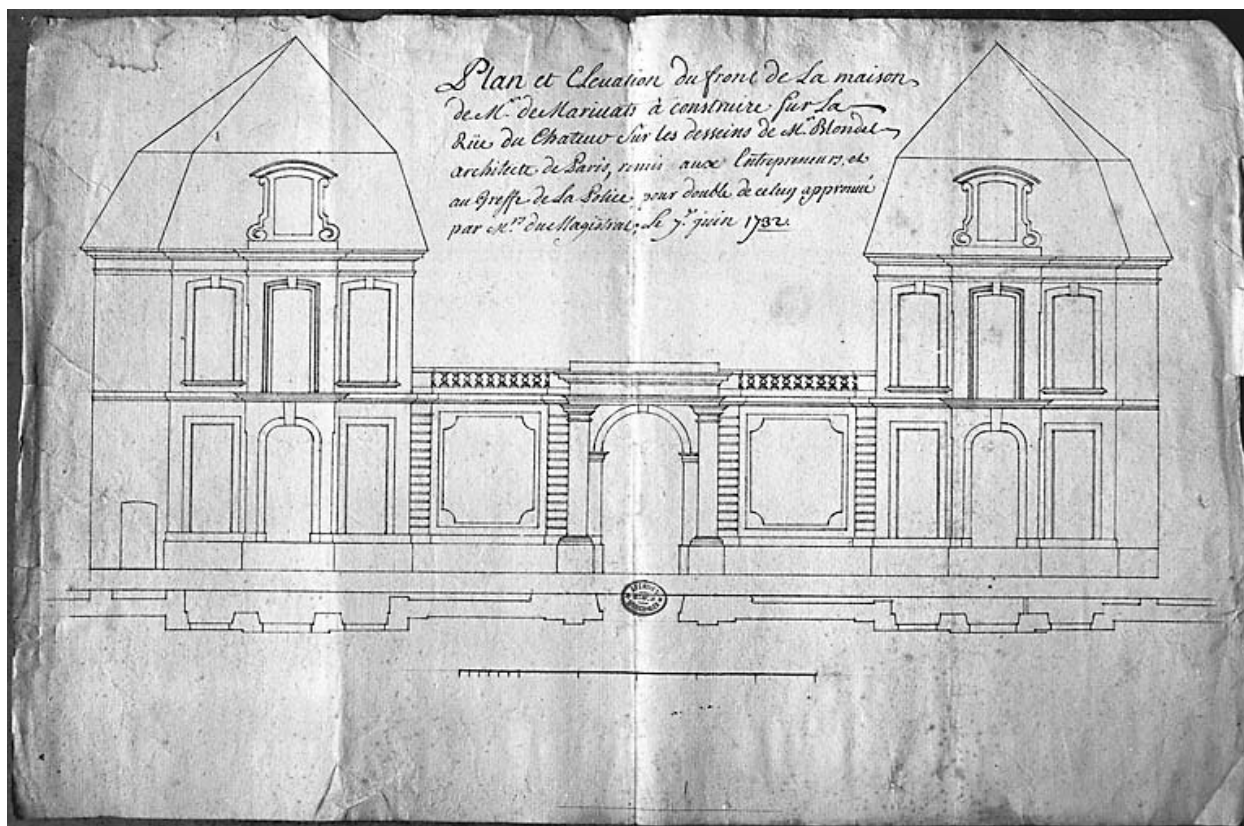 Plan et Elevation du front de La maison
de Mr. de Marivats à construire Sur La
Rüe du Chateau Sur les desseins de Mr. Blondel
architecte de Paris, remis aux Entrepreneurs, et
au Greffe de La Police, pour double de celuy approuvé
par Mrs. du Magistrat, Le 7e. juin 1732.